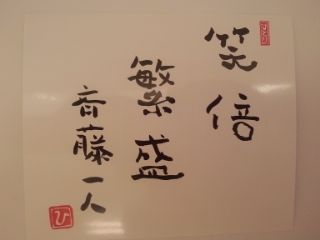 笑倍
繁盛
斉藤一人
ひ